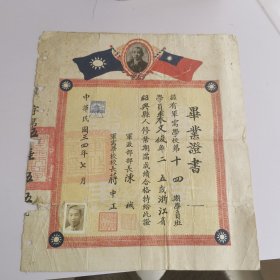 畢業證書
茲有軍需學校第十四期學員班
學員朱文級年二五歲浙江省
紹興縣人修業期滿成績合格特給此證
軍政部部長陳誠
軍需學校校長蔣中正
中華民國三四年七月